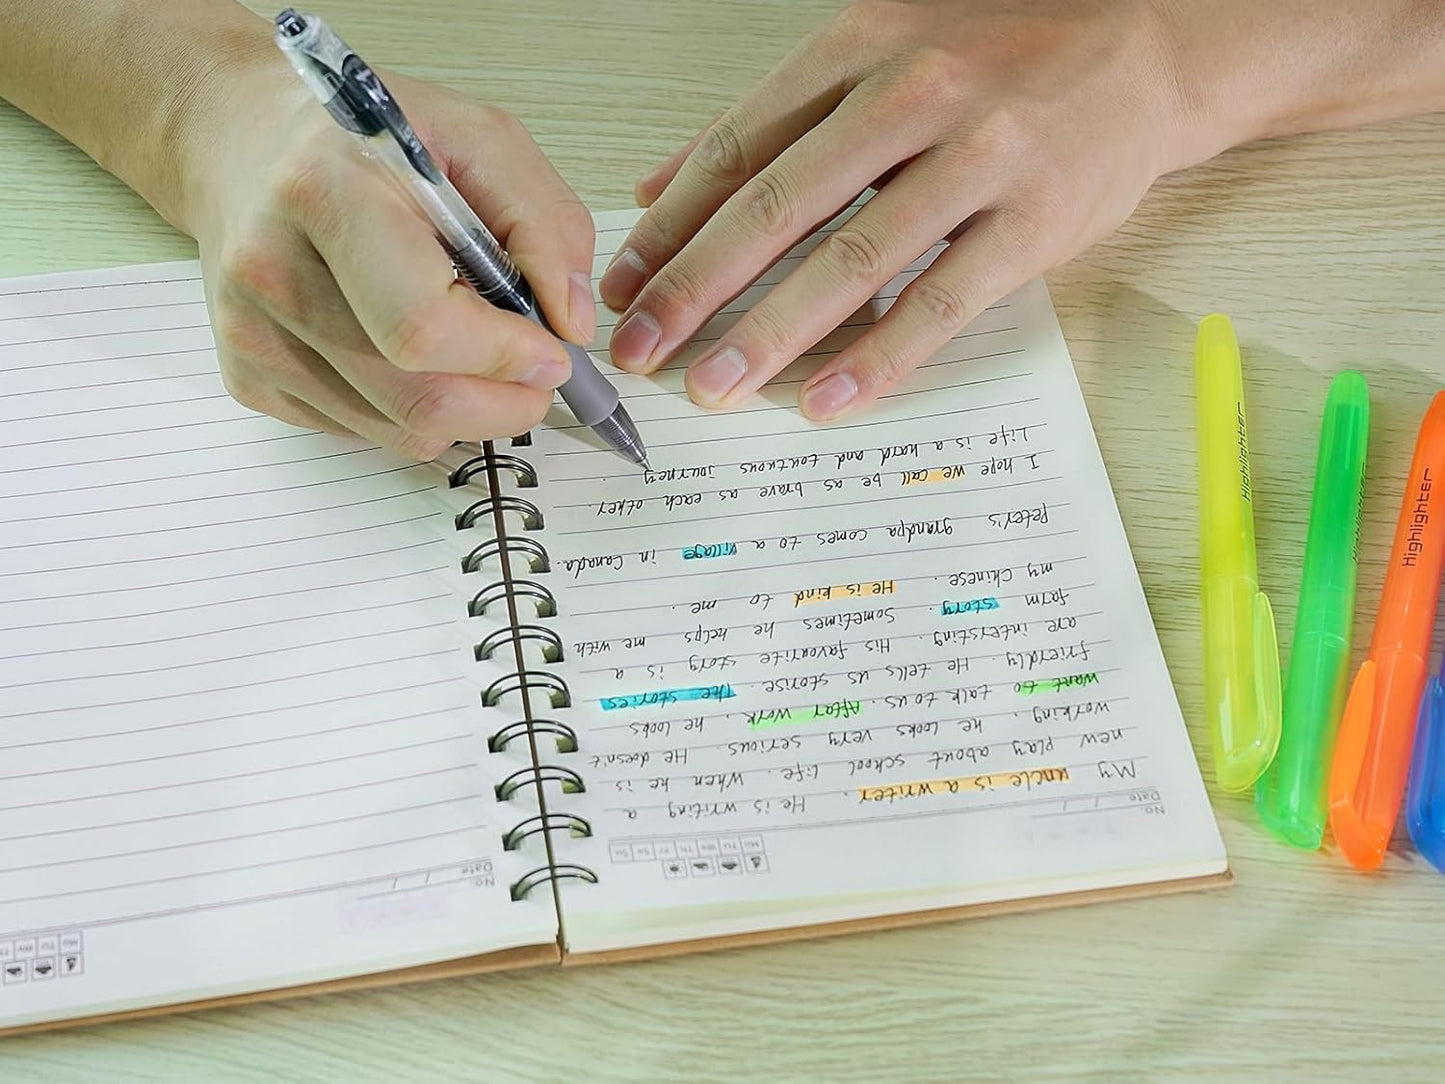 No
Date / /
Mo Tu We Th Fr Sa Su
My uncle is a writer. He is writing a
new play about school life. When he is
working. he looks very serious. He doesn't
want to talk to us. After work. he looks
friendly. He tells us storise. The stories
are interesting. His favorite story is a
farm story. Sometimes he helps me with
my Chinese. He is kind to me.
Peter's grandpa comes to a village in Canada.
I hope we call be as brave as each other.
Life is a hard and toutnous journey
No
Date / /
Mo Tu We Th
Highlighter
Highlighter
Highlighter